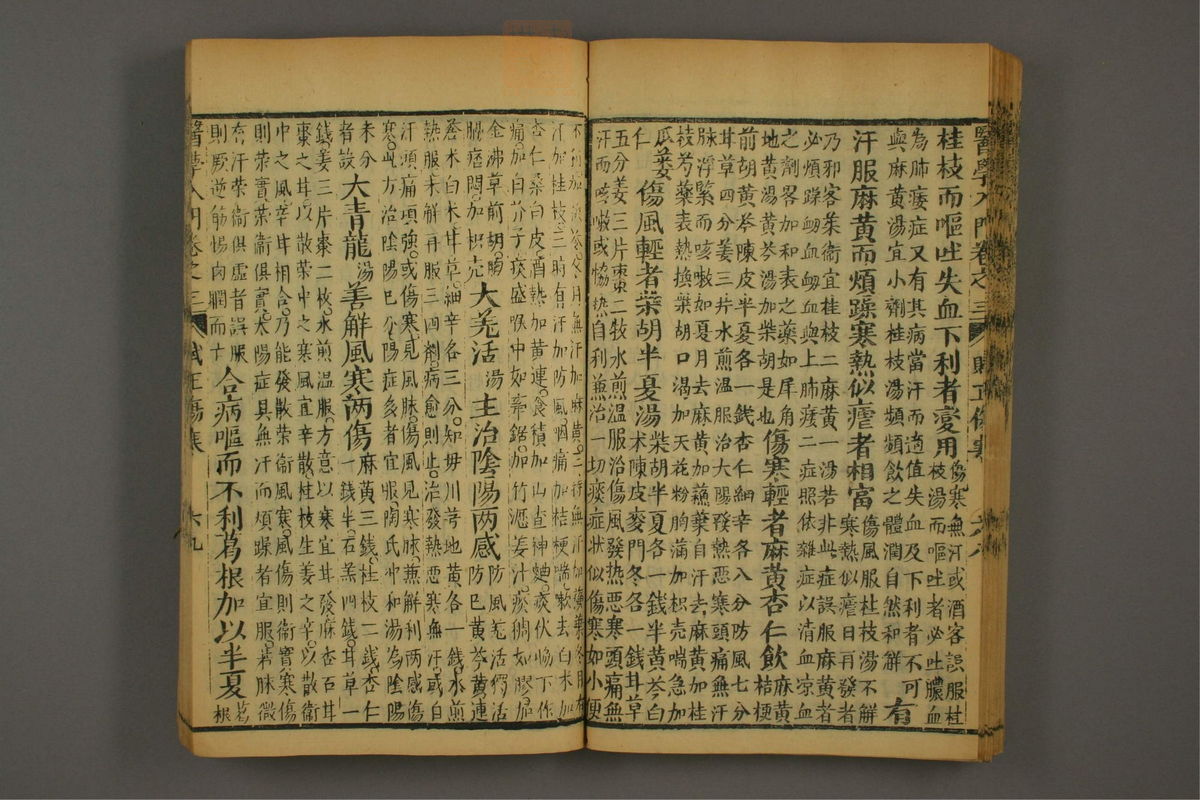 醫學入門卷之三
桂枝而嘔吐失血下利者愛用
傷寒無汗或酒客誤服桂
枝湯而嘔吐者必吐膿血
為肺痿症又有其病當汗而適值失血及下利者不可
與麻黃湯宜小劑桂枝湯頻頻飲之體潤自然和解
有
汗服麻黃而煩躁寒熱似瘧者相當
傷風服桂枝湯不解
寒熱似瘧日再發者
乃邪客荣衛宜桂枝二麻黃一湯若非此症誤服麻黃者
必煩躁衂血衂血與上肺痿二症照依雜症以清血凉血
之劑畧加和表之藥如犀角
地黃湯黃芩湯加柴胡是也
傷寒輕者麻黃杏仁飲
麻黃
桔梗
前胡黃芩陳皮半夏各一錢杏仁細辛各八分防風七分
甘草四分姜三片水煎温服治太陽發熱惡寒頭痛無汗
脉浮緊而咳嗽如夏月去麻黃加蘓葉自汗去麻黃加桂
枝芍藥表熱換柴胡口渴加天花粉胸滿加枳壳喘急加
瓜蔞
仁
傷風輕者柴胡半夏湯
柴胡半夏各一錢半黃芩白
术陳皮麥門冬各一錢甘草
五分姜三片棗二枚水煎温服治傷風發热惡寒頭痛無
汗而咳嗽或恊热自利兼治一切痰症状似傷寒如小便
冬月無汗加麻黃
加桂枝有汗加防風咽痛加桔梗喘嗽去白术加
杏仁桑白皮酒熱加黃連食積加山查神麯痰伏胁下作
痛加白芥子痰盛喉中如鼾鋸加竹瀝姜汁痰稠如膠加
金沸草前胡胸
膈痞悶加枳壳
大羌活湯主治陰陽两感
防風羌活獨活
防巳黃芩黃連
蒼术白术甘草細辛各三分知母川芎地黃各一錢水煎
熱服未解再服三四劑病愈則止治發熱惡寒無汗或自
汗頭痛項強或傷寒見風脉傷風見寒脉兼解利两感傷
寒此方治陰陽巳分陽症多者宜服陶氏冲和湯為陰陽
未分
者設
大青龍湯善解風寒两傷
麻黃三錢桂枝二錢杏仁
一錢半石羔四錢甘草一
錢姜三片棗二枚水煎温服方意以寒宜甘發麻杏石甘
棗之甘以散荣中之寒風宜辛散桂枝生姜之辛以散衛
中之風辛甘相合乃能發散荣衛風寒風傷則衛實寒傷
則荣實荣衛俱實太陽症具無汗而煩躁者宜服若脉微
有汗荣衛俱虛者誤服
則厥逆筋惕肉瞤而亡
合病嘔而不利葛根加以半夏
葛
根
醫學入門卷之三
賦正傷寒
六九